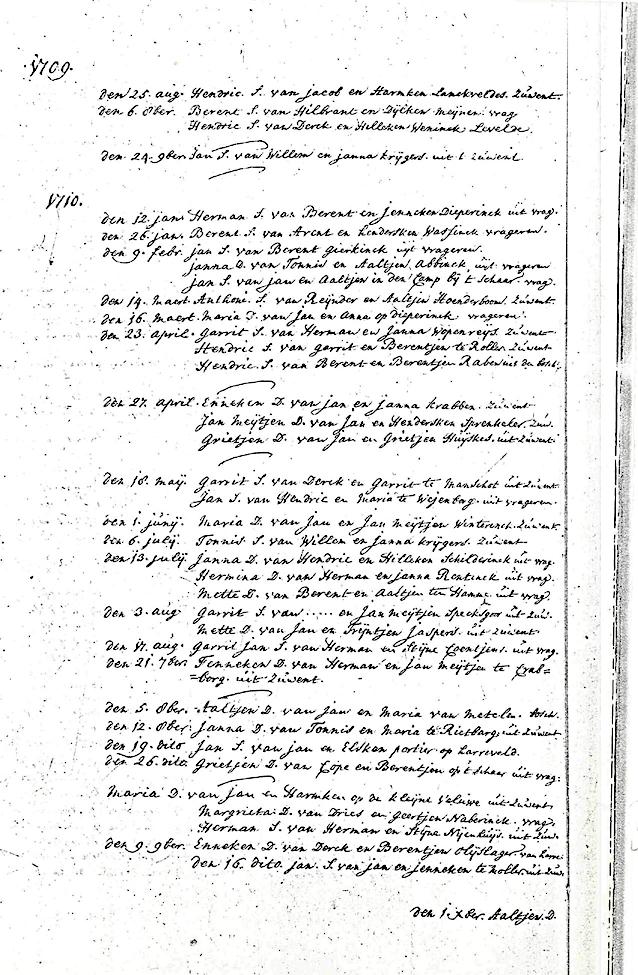 1709.
den 25. aug. Hendric S. van Jacob en Harmken Lankveldes. Zuwent.
den 6. 8ber. Berent S. van Hilbrant en Dijtken Meijnen. vrag
Hendric S. van Derck en Hilleken Weninck Levelde.
den. 24. 9ber Jan S. van Willem en Janna Krijgers. uit t Zuwent
1710.
den 12. jan. Herman S. van Berent en Jenneken Dieperinck uit vrag.
den 26. jan. Berent S. van Arent en Hendersken Wassinck vrageren.
den 9. febr. Jan S. van Berent Gierkinck uijt vrageren.
Janna D. van Tonnis en Aaltjen Abbinck uijt vrageren
Jan S. van Jan en Aaltjen in den Camp bij t Schaar. vrag.
den 14. Maert. Anthoni S. van Reijnder en Aaltjen Hoenderboom Zuwent.
den 16. Maert. Maria D. van Jan en Anna op Dieperinck vrageren.
den 23. april. Garrit S. van Herman en Janna Wopenreijs. Zuwent
Hendric S. van Garrit en Berentjen te Roller. Zuwent
Hendric S. van Berent en Berentjen Raben uit de
den 27. april. Enneken D. van Jan en Janna Krabben. Zuwent
Jan Meijtjen D. van Jan en Hendersken Sprenkeler. Zuw.
Grietjen D. van Jan en Grietjen Huijskes. uit Zuwent.
den 18. Maij. Garrit S. van Derck en Garrit te Manschot uit Zuwent.
Jan S. van Hendric en Maria te Wejenborg. uit vrageren.
den 1. junij. Maria D. van Jan en Jan Meijtjen Winterinck. Zuwent.
den 6. julij. Tonnis S. van Willem en Janna Krijgers. Zuwent
den 13. julij Janna D. van Hendric en Hilleken Schilderinck uit vrag.
Hermina D. van Herman en Janna Rentinck uit vrag.
Mette D. van Berent en Aaltjen ten Hamme uit vrag.
den 3. aug. Garrit S. van ..... en Jan Meijtjen Speckgoor uit Zuw.
Mette D. van Jan en Trijntjen Jaspers. uit Zuwent
den 17. aug. Garrit Jan S. van Herman en Stijne Coentjens. uit vrag.
den 21. 7ber Fenneken D. van Herman en Jan Meijtjen te Cnb=
=borg. uit Zuwent.
den 5. 8ber. Aaltjen D. van Jan en Maria van Metelen.
den 12. 8ber. Janna D. van Tonnis en Maria te Rietbarg. uit Zuwent
den 19. dito Jan S. van Jan en Elsken Portier op Harreveld.
den 26. dito Grietjen D. van Cope en Berentjen op t Schaer uit vrag.
Maria D. van Jan en Harmken op de Kleijne Veluwe uit Zuwent.
Margrieta D. van Dries en Geertjen Naberinck. vrag.
Herman S. van Herman en Stijne Nijenhuijs. uit Zuw.
den 9. 9ber. Enneken D. van Derck en Berentjen Olijslager. van Harre
den 16. dito. Jan. S. van Jan en Jenneken te Roller. uit Zuw.
den 1 Xber. Aaltjen D.